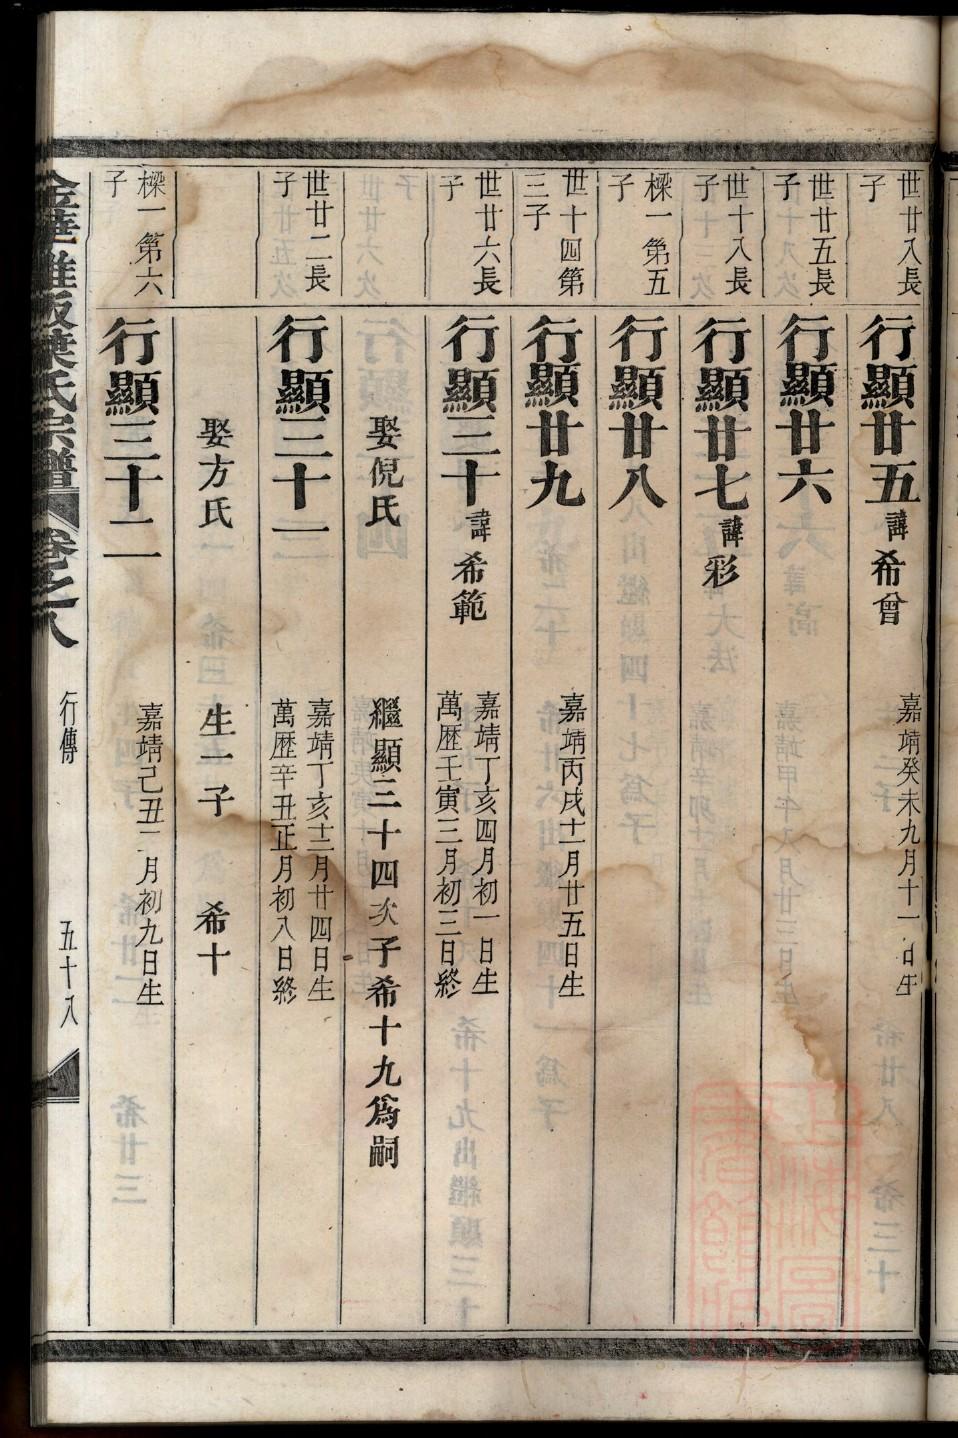 世廿八長
子
行顯廿五 諱希曾
嘉靖癸未九月十一日生
世廿五長
子
行顯廿六
世十八長
子
行顯廿七 諱彩
樑一第五
子
行顯廿八
世十四第
三子
行顯廿九
嘉靖丙戌十一月廿五日生
世廿六長
子
行顯三十 諱希範
嘉靖丁亥四月初一日生
萬歷壬寅三月初三日終
娶倪氏 繼顯三十四次子希十九為嗣
世廿二長
子
行顯三十一
嘉靖丁亥十二月廿四日生
萬歷辛丑正月初八日終
娶方氏 生一子 希十
樑一第六
子
行顯三十二
嘉靖己丑二月初九日生
宗譜 卷之八 行傳 五十八